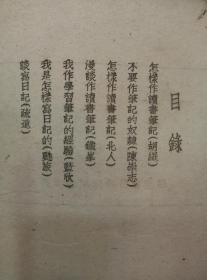 目錄
怎樣作讀書筆記(胡繩)
不要作筆記的奴隸(陳崇志)
怎樣作讀書筆記(北人)
漫談作讀書筆記(鐵峯)
我作學習筆記的經驗(藍欣)
我是怎樣寫日記的(勵旅)
談寫日記(疏遠)